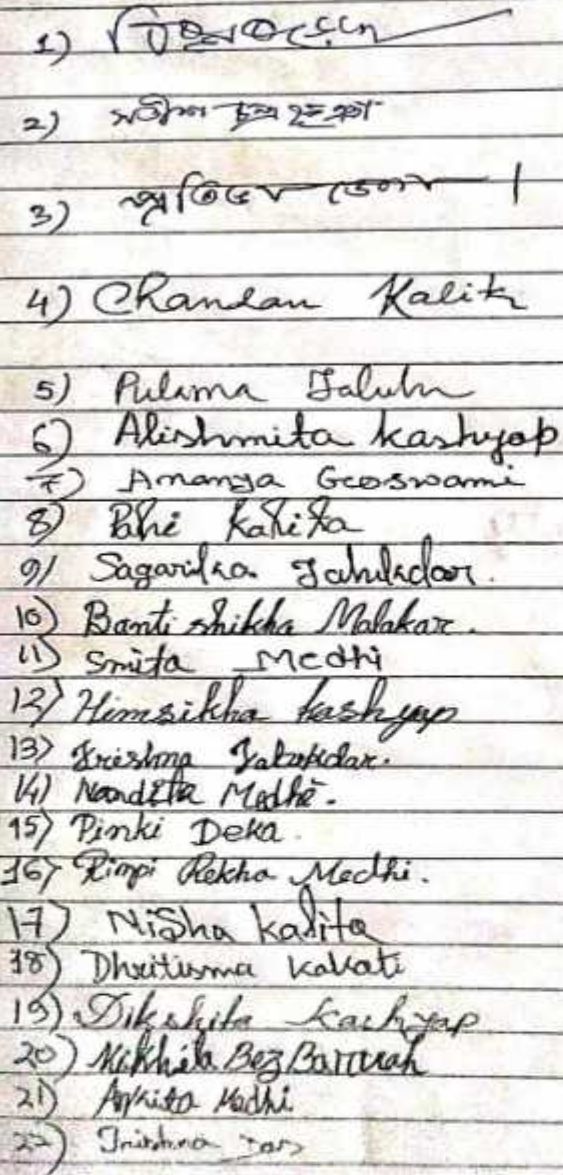 1)
2) সতীশ চন্দ্র
3)
4) Chandan Kalita
5) Pulama
6) Alishmita kashyap
7) Ananya Goswami
8) Pahi Kalita
9) Sagarika Talukdar.
10) Banti shikha Malakar.
11) Smita Medhi
12) Himsikha kashyap
13) Krishna Talukdar.
14) Nandita Medhi.
15) Pinki Deka.
16) Rimpi Rekha Medhi.
17) Nisha Kalita
18) Dhritisma Kakati
19) Dikshita Kashyap
20) Nikhila Bez Baruah
21) Ankita Medhi
22) Trishna Das